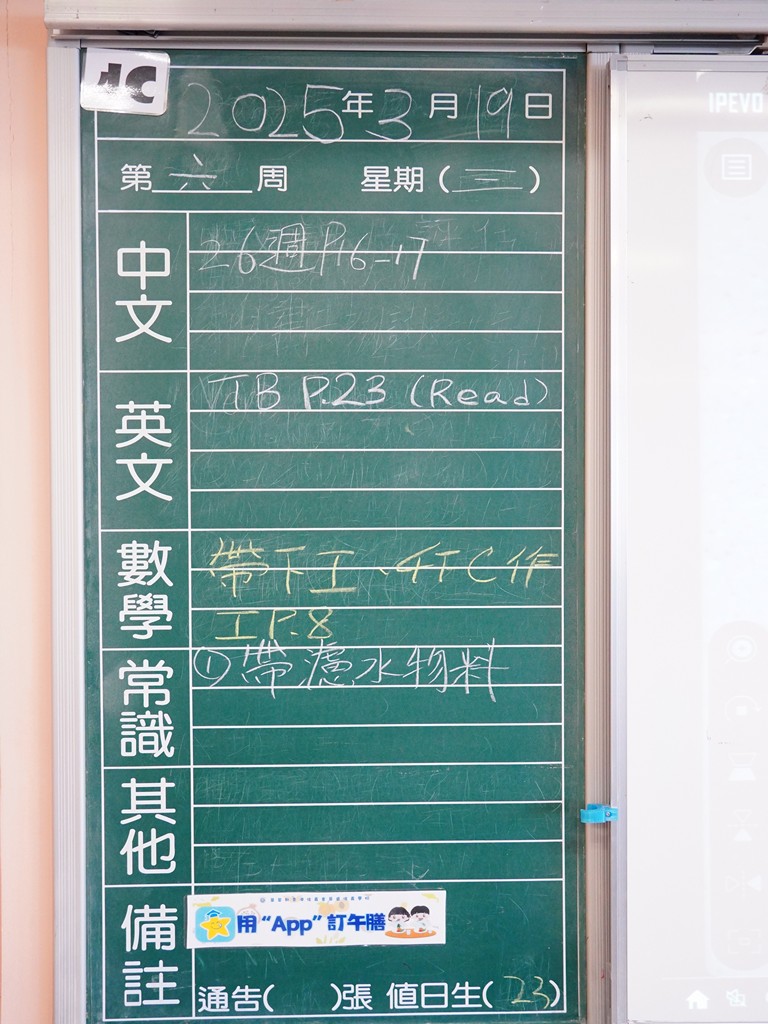 2025年3月19日
第六周 星期(三)
中文
26週 P.16-17
英文
TB P.23 (Read)
數學
帶下工、4下C作
工P.8
常識
①帶濾水物料
其他
備註
用“App”訂午膳
通告( )張 值日生(23)
IPEVO